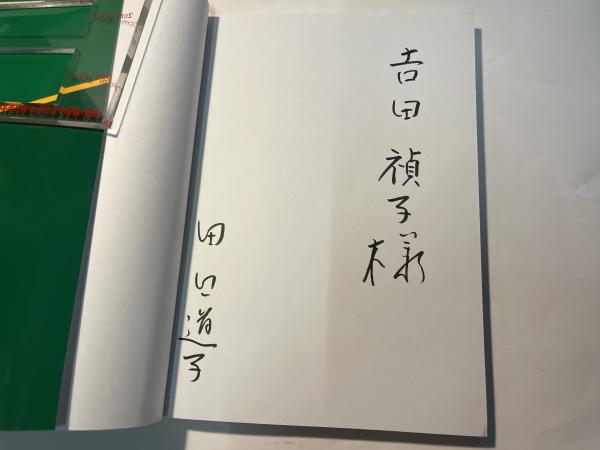 吉田禎子様
田口道子